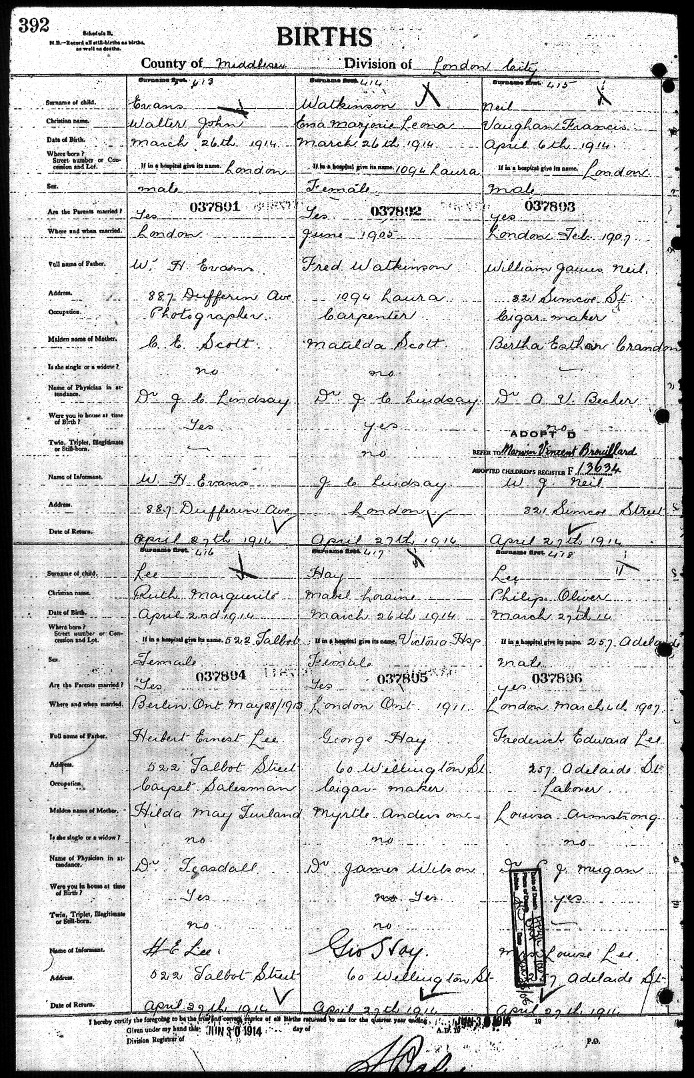 392
Schedule B.
N.B.—Record all still-births as births, as well as deaths.
BIRTHS
County of Middlesex Division of London City
Surname first. 413 Surname first. 414 Surname first. 415
Surname of child. Evans Watkinson Neil
Christian name. Walter John Ena Marjorie Leona Vaughan Francis
Date of Birth. March 26th 1914 March 26th 1914 April 6th 1914
Where born? Street number or Concession and Lot. If in a hospital give its name. London If in a hospital give its name. 1094 Laura If in a hospital give its name. London
Sex. male Female male
037891 037892 037893
Are the Parents married? Yes Yes yes
Where and when married. London June 1905 London Feb. 1907
Full name of Father. W. H. Evans Fred Watkinson William James Neil.
Address. 887 Dufferin Ave 1094 Laura 321 Simcoe St
Occupation. Photographer. Carpenter Cigar maker
Maiden name of Mother. C. E. Scott Matilda Scott Bertha Esther Crandon
Is she single or a widow? no no —
Name of Physician in attendance. Dr J C Lindsay Dr J C Lindsay Dr A V Becher
Were you in house at time of Birth? Yes yes no
ADOPT D
Twin, Triplet, Illegitimate or Still-born. — no
REFER TO Vincent Brouillard
ADOPTED CHILDREN'S REGISTER F 13634
Name of Informant. W. H Evans J C Lindsay W. J. Neil
Address. 887 Dufferin Ave London 321 Simcoe Street
Date of Return. April 27th 1914 April 27th 1914 April 27th 1914
Surname first. 416 Surname first. 417 Surname first. 418
Surname of child. Lee Hay Lee
Christian name. Ruth Marguerite Mabel Loraine Philip Oliver
Date of Birth. April 2nd 1914 March 26th 1914 March 27th 14
Where born? Street number or Concession and Lot. If in a hospital give its name. 522 Talbot If in a hospital give its name. Victoria Hsp If in a hospital give its name. 257 Adelaide
Sex. Female Female male
037894 037895 037896
Are the Parents married? Yes Yes yes
Where and when married. Berlin Ont May 28/1913 London Ont 1911 London March 6th 1907
Full name of Father. Herbert Ernest Lee George Hay Frederick Edward Lee
Address. 522 Talbot Street 60 Wellington St 257 Adelaide St
Occupation. Carpet Salesman Cigar maker Laborer
Maiden name of Mother. Hilda May Myrtle Anderson Louisa Armstrong
Is she single or a widow? no no no
Name of Physician in attendance. Dr Teasdall Dr James Wilson Dr J. Mugan
Were you in house at time of Birth? Yes no Yes yes
Twin, Triplet, Illegitimate or Still-born. no no —
Name of Informant. H E Lee. Geo Hay. Louise Lee
Address. 522 Talbot Street 60 Wellington St 257 Adelaide St
Date of Return. April 27th 1914 April 27th 1914 April 27th 1914
I hereby certify the foregoing to be the true and correct copies of all Births returned to me for the quarter year ending JUN 30 1914 19
Given under my hand this JUN 30 1914 day of A.D. 19
Division Registrar of P.O.